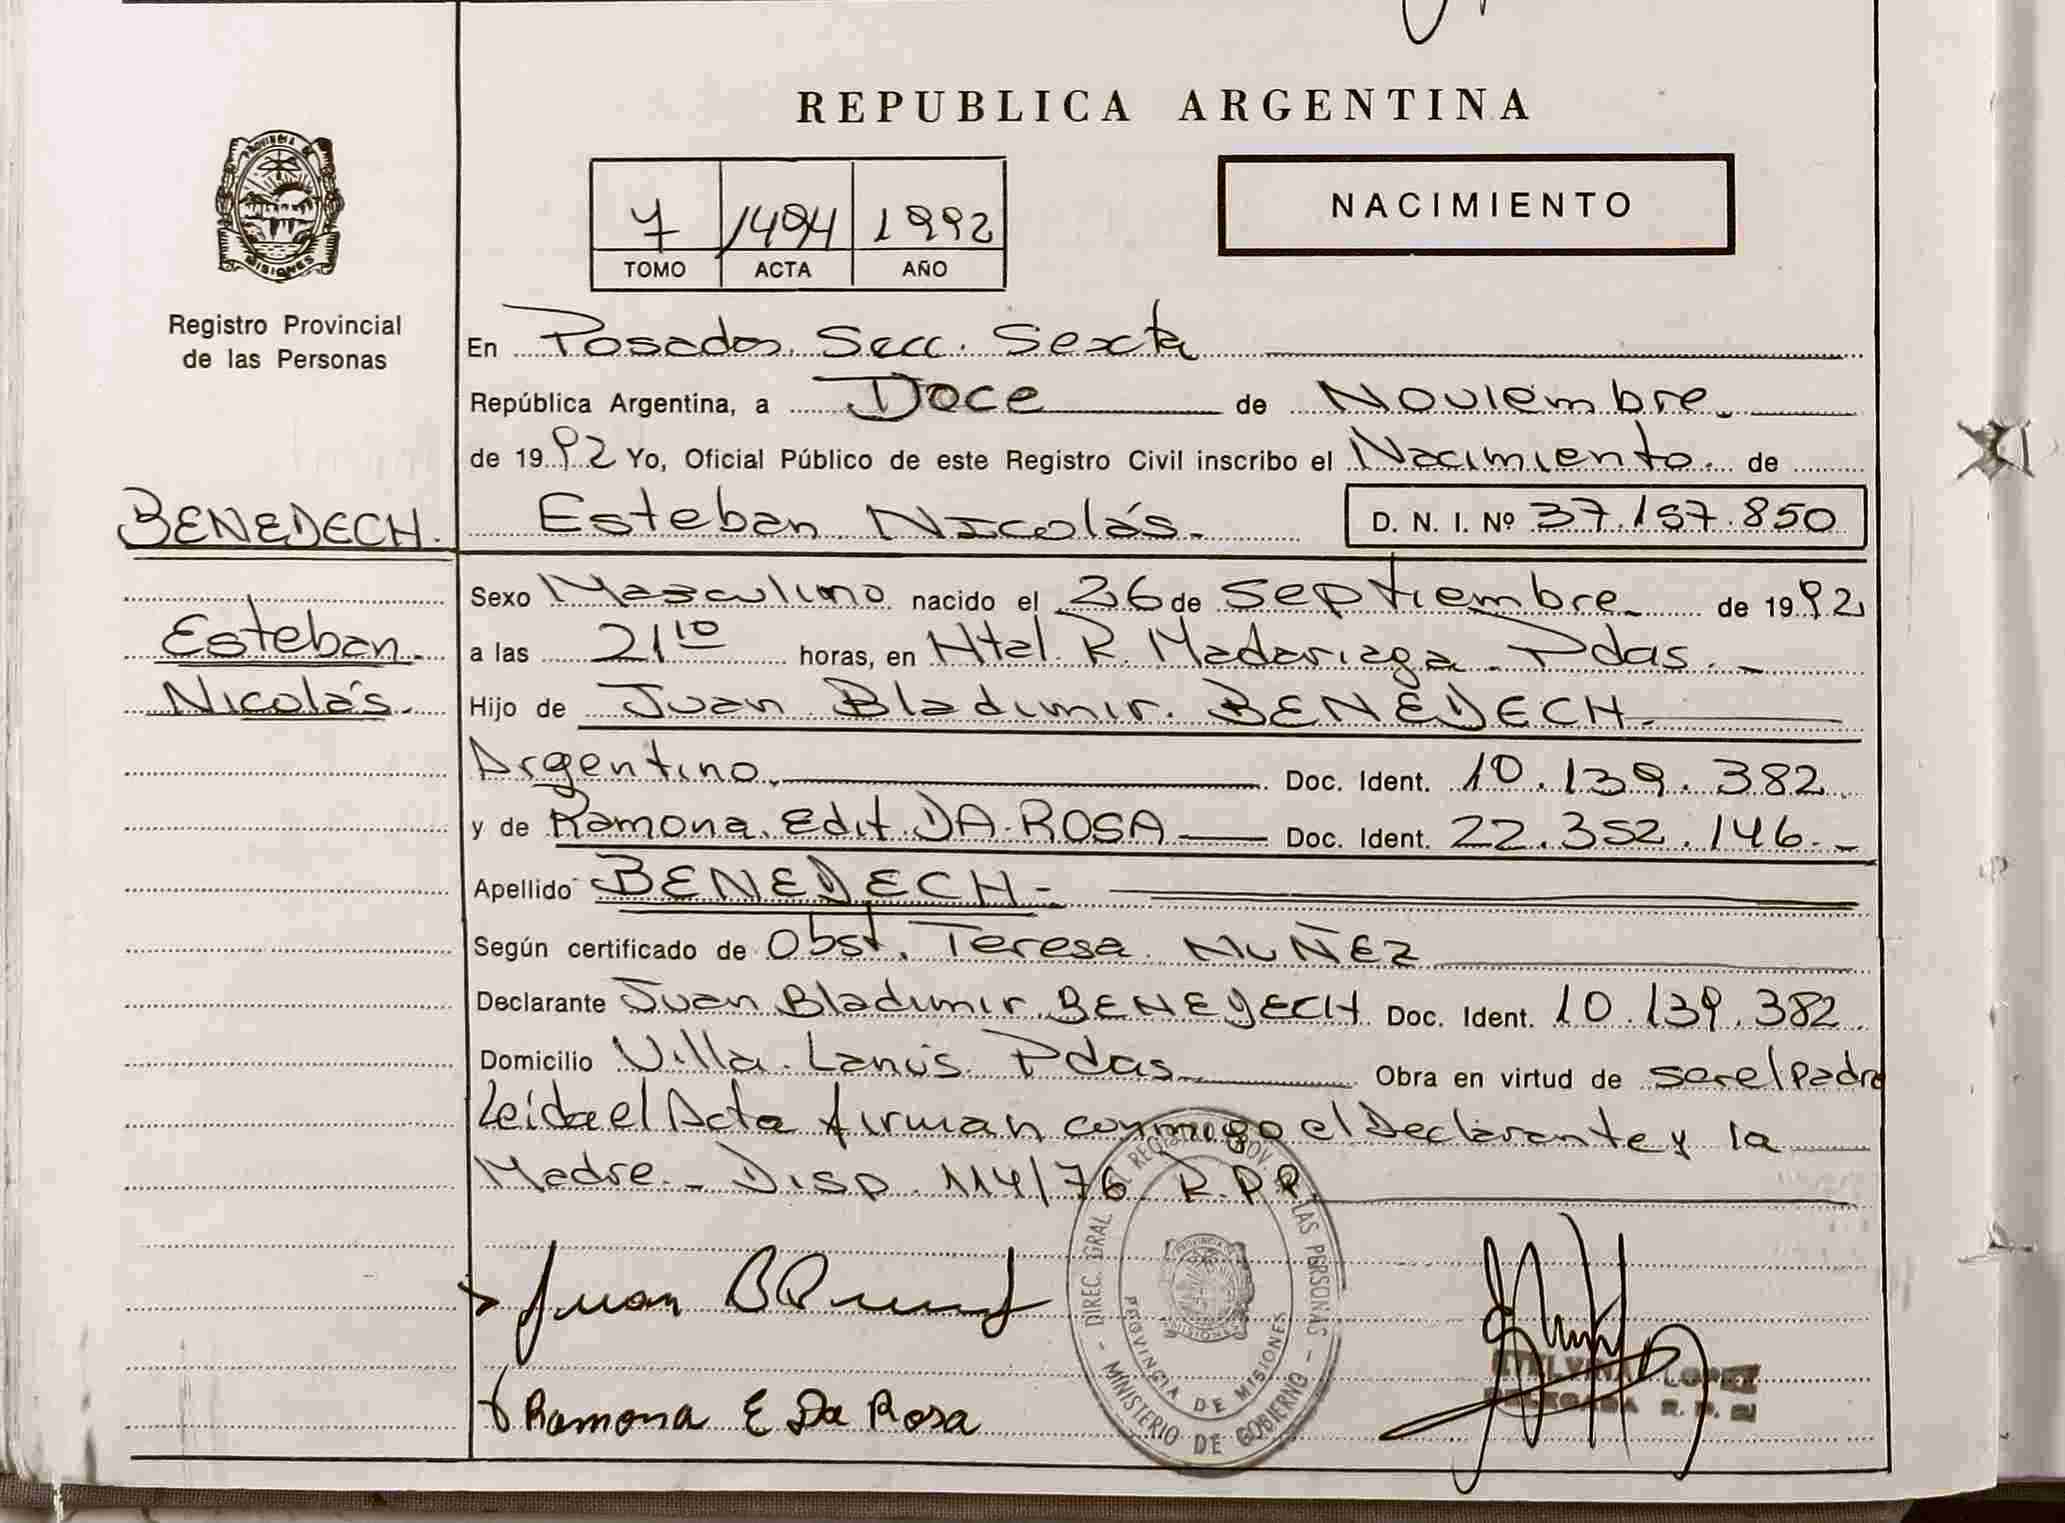 REPUBLICA ARGENTINA
PROVINCIA DE
MISIONES
Registro Provincial
de las Personas
7 1494 1992
TOMO ACTA AÑO
NACIMIENTO
En Posadas. Secc. Sexta
República Argentina, a Doce de Noviembre.
de 1992 Yo, Oficial Público de este Registro Civil inscribo el Nacimiento. de
BENEDECH.
Esteban Nicolás. D. N. I. Nº 37.157.850
Esteban.
Nicolás.
Sexo Masculino nacido el 26 de Septiembre de 1992
a las 21 10 horas, en Htal. R. Madariaga - Pdas. -
Hijo de Juan Bladimir. BENEDECH
Argentino. Doc. Ident. 10.139.382
y de Ramona. Edit. DA-ROSA Doc. Ident. 22.352.146.-
Apellido BENEDECH-
Según certificado de Obst. Teresa. MUÑEZ
Declarante Juan Bladimir. BENEDECH Doc. Ident. 10.139.382
Domicilio Villa. Lanús. Pdas Obra en virtud de ser el Padre
Leida el Acta firman conmigo el Declarante y la
Madre.- Disp. 114/76. R.P.P.
Juan
Ramona E Da Rosa
DIREC. GRAL. DE REGISTRO PROV. DE LAS PERSONAS - MINISTERIO DE GOBIERNO -
PROVINCIA DE MISIONES
LOPEZ
DELEGADA R. P. P.